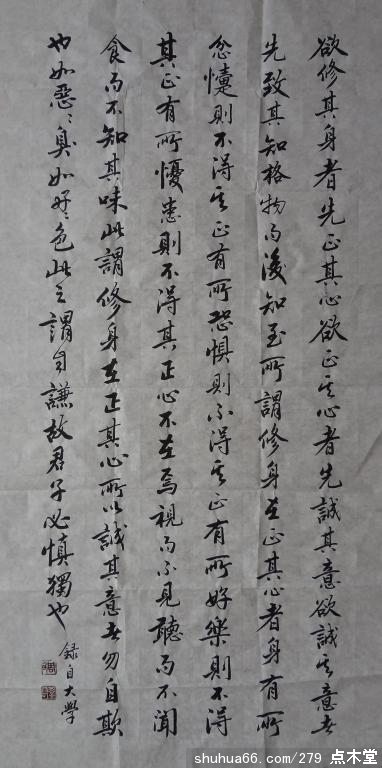 欲修其身者先正其心欲正其心者先誠其意欲誠其意者
先致其知格物而後知至所謂修身在正其心者身有所
忿懥則不得其正有所恐惧則不得其正有所好樂則不得
其正有所憂患則不得其正心不在焉視而不見聽而不聞
食而不知其味此謂修身在正其心所以誠其意者勿自欺
也如惡〻臭如好〻色此之謂自謙故君子必慎獨也
録自大學
shuhua66.com/279 点木堂